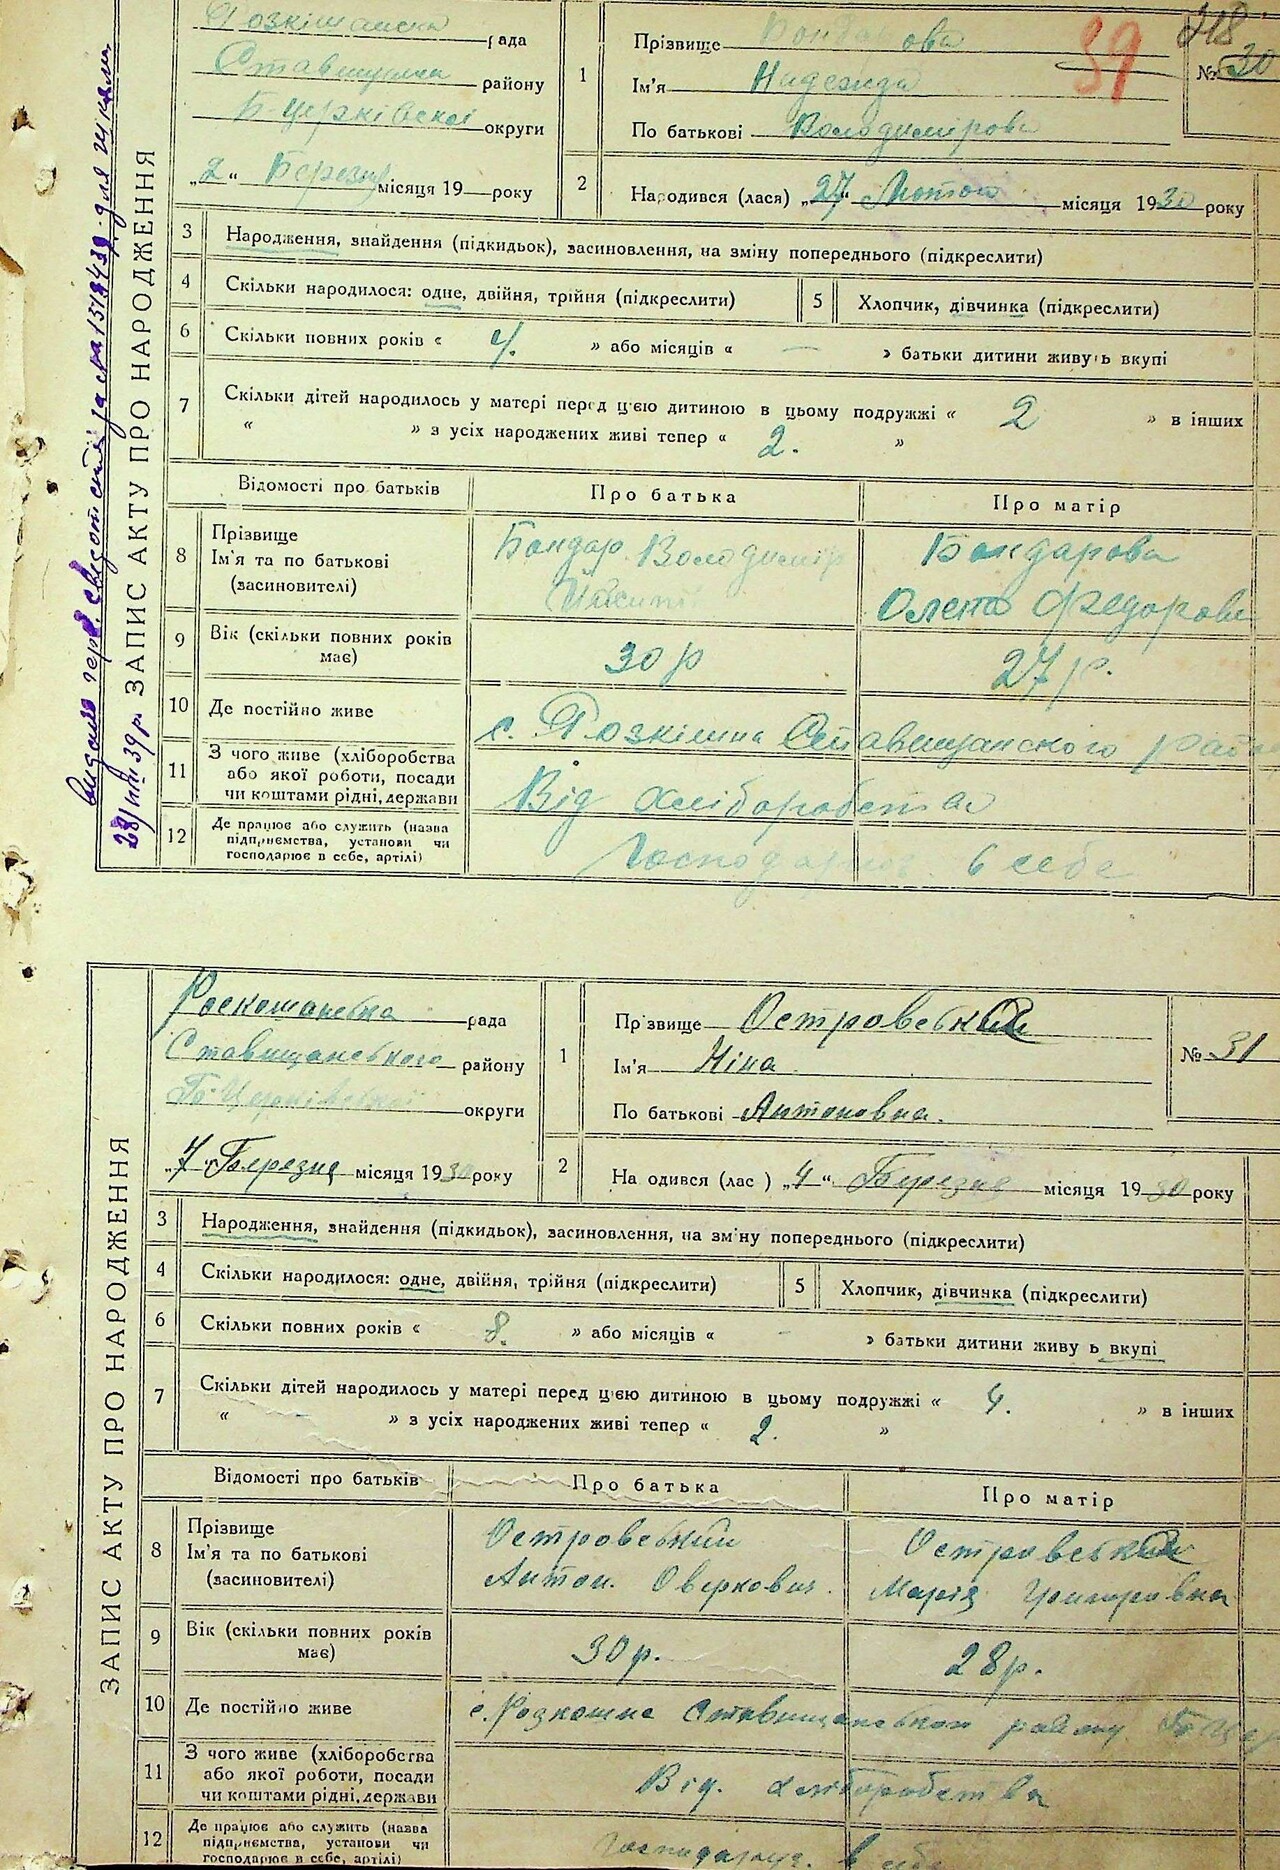 ЗАПИС АКТУ ПРО НАРОДЖЕННЯ
рада
району
Б-Церківської округи
„2“ Березня місяця 19 року
1
Прізвище Бондарова
Ім'я Надежда
По батькові Володимірова
39
218
№ 30
2
Народився (лася) „27“ Лютого місяця 1930 року
3
Народження, знайдення (підкидьок), засиновлення, на зміну попереднього (підкреслити)
4
Скільки народилося: одне, двійня, трійня (підкреслити)
5
Хлопчик, дівчинка (підкреслити)
6
Скільки повних років « 4. » або місяців « — » батьки дитини живуть вкупі
7
Скільки дітей народилось у матері перед цією дитиною в цьому подружжі « 2 » в інших
« » з усіх народжених живі тепер « 2. »
Відомості про батьків
Про батька
Про матір
8
Прізвище
Ім'я та по батькові
(засиновителі)
Бондар Володимір
Бондарова
Олена Федорівн
9
Вік (скільки повних років
має)
30 р
27 р.
10
Де постійно живе
с. Розкішна Ставищанского рай
11
З чого живе (хліборобства
або якої роботи, посади
чи коштами рідні, держави
Від хліборобства
12
Де працює або служить (назва
підприємства, установи чи
господарює в себе, артілі)
в себе
ЗАПИС АКТУ ПРО НАРОДЖЕННЯ
Роскошанська рада
Ставищанського району
Б-Церківської округи
„7“ Березня місяця 1930 року
1
Прізвище
Ім'я Ніна
По батькові Антоновна.
№ 31
2
На одився (лас ) „4“ Березня місяця 1930 року
3
Народження, знайдення (підкидьок), засиновлення, на зміну попереднього (підкреслити)
4
Скільки народилося: одне, двійня, трійня (підкреслити)
5
Хлопчик, дівчинка (підкреслити)
6
Скільки повних років « 8. » або місяців « - » батьки дитини живу ь вкупі
7
Скільки дітей народилось у матері перед цією дитиною в цьому подружжі « 4. » в інших
« » з усіх народжених живі тепер « 2. »
Відомості про батьків
Про батька
Про матір
8
Прізвище
Ім'я та по батькові
(засиновителі)
Островський
Антон Оверкович.
Марія Григоровна
9
Вік (скільки повних років
має)
30 р.
28 р.
10
Де постійно живе
с. Розкошна району
11
З чого живе (хліборобства
або якої роботи, посади
чи коштами рідні, держави
Від хліборобства
12
Де працює або служить (назва
підприємства, установи чи
господарює в себе, артілі)
в себе